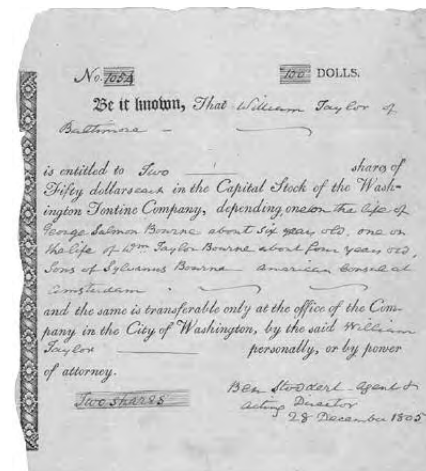 No. 1054 100 DOLLS.
Be it known, That William Taylor of
Baltimore
is entitled to Two share of
Fifty dollars each in the Capital Stock of the Wash-
ington Tontine Company, depending one on the life of
George Salmon Bourne about six years old, one on
the life of Wm Taylor Bourne about four years old,
Sons of Sylvanus Bourne American Consul at
Amsterdam
and the same is transferable only at the office of the Com-
pany in the City of Washington, by the said William
Taylor personally, or by power
of attorney.
Two shares
Ben Stoddert agent &
acting Director
28 December 1805